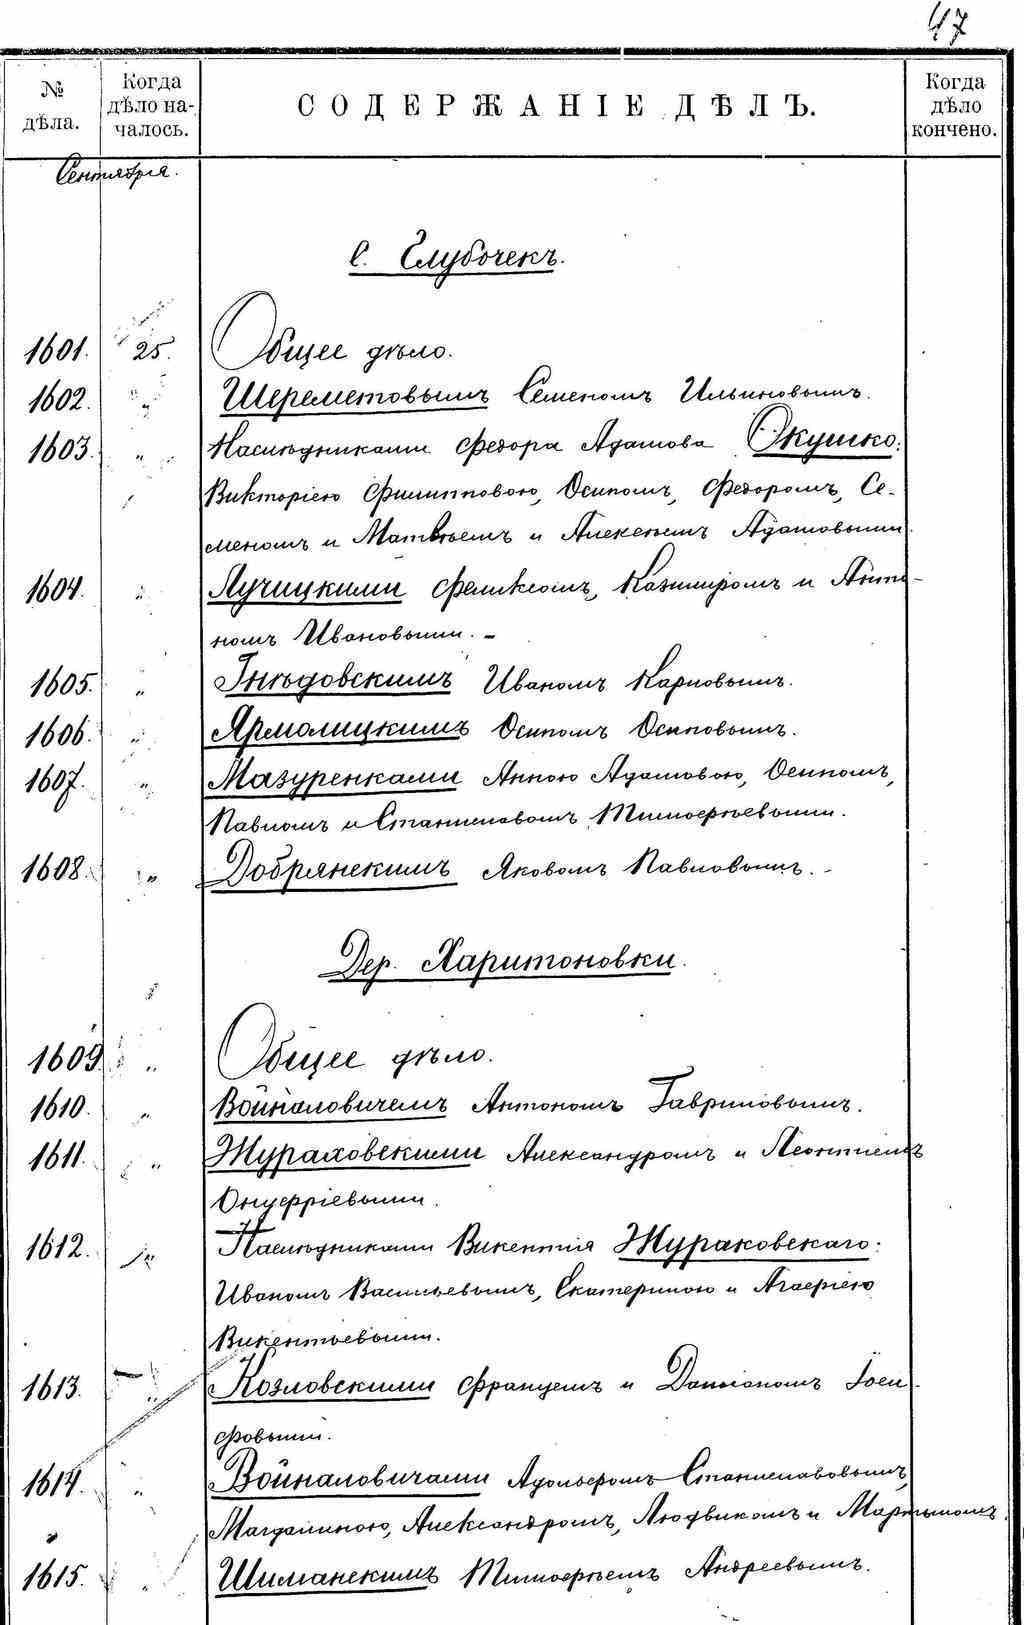 47
№ дѣла. Когда дѣло на- чалось. СОДЕРЖАНІЕ ДѢЛЪ. Когда дѣло кончено.
Сентября.
С. Глубочекъ.
1601. 25. Общее дѣло.
1602. " Шереметовымъ Семеномъ Ильиновымъ.
1603. " Наслѣдниками Федора Адамова Окушко:
Викторіею Филипповою, Осипомъ, Федоромъ, Се-
меномъ и Матвѣемъ и Алексѣемъ Адамовыми.
1604. " Лучицкими Феликсомъ, Казимиромъ и Анто-
номъ Ивановыми. -
1605. " Гнѣдовскимъ Иваномъ Карповымъ.
1606. " Ярмолицкимъ Осипомъ Осиповымъ.
1607. " Мазуренками Анною Адамовою, Осипомъ,
Павломъ и Станиславомъ Тимофѣевыми.
1608. " Добрянскимъ Яковомъ Павловымъ. -
Дер. Харитоновки.
1609. " Общее дѣло.
1610. " Войналовичемъ Антономъ Гавриловымъ.
1611. " Жураховскими Александромъ и Леонтіемъ
Онуфріевыми.
1612. " Наслѣдниками Викентія Жураковскаго:
Иваномъ Васильевымъ, Екатериною и Агафіею
Викентьевыми.
1613. " Козловскими Францемъ и Даміаномъ Іоси-
фовыми.
1614. " Войналовичами Адольфомъ Станиславовымъ,
Магдалиною, Александромъ, Людвикомъ и Мартыномъ.
1615. " Шиманскимъ Тимофѣемъ Андреевымъ.